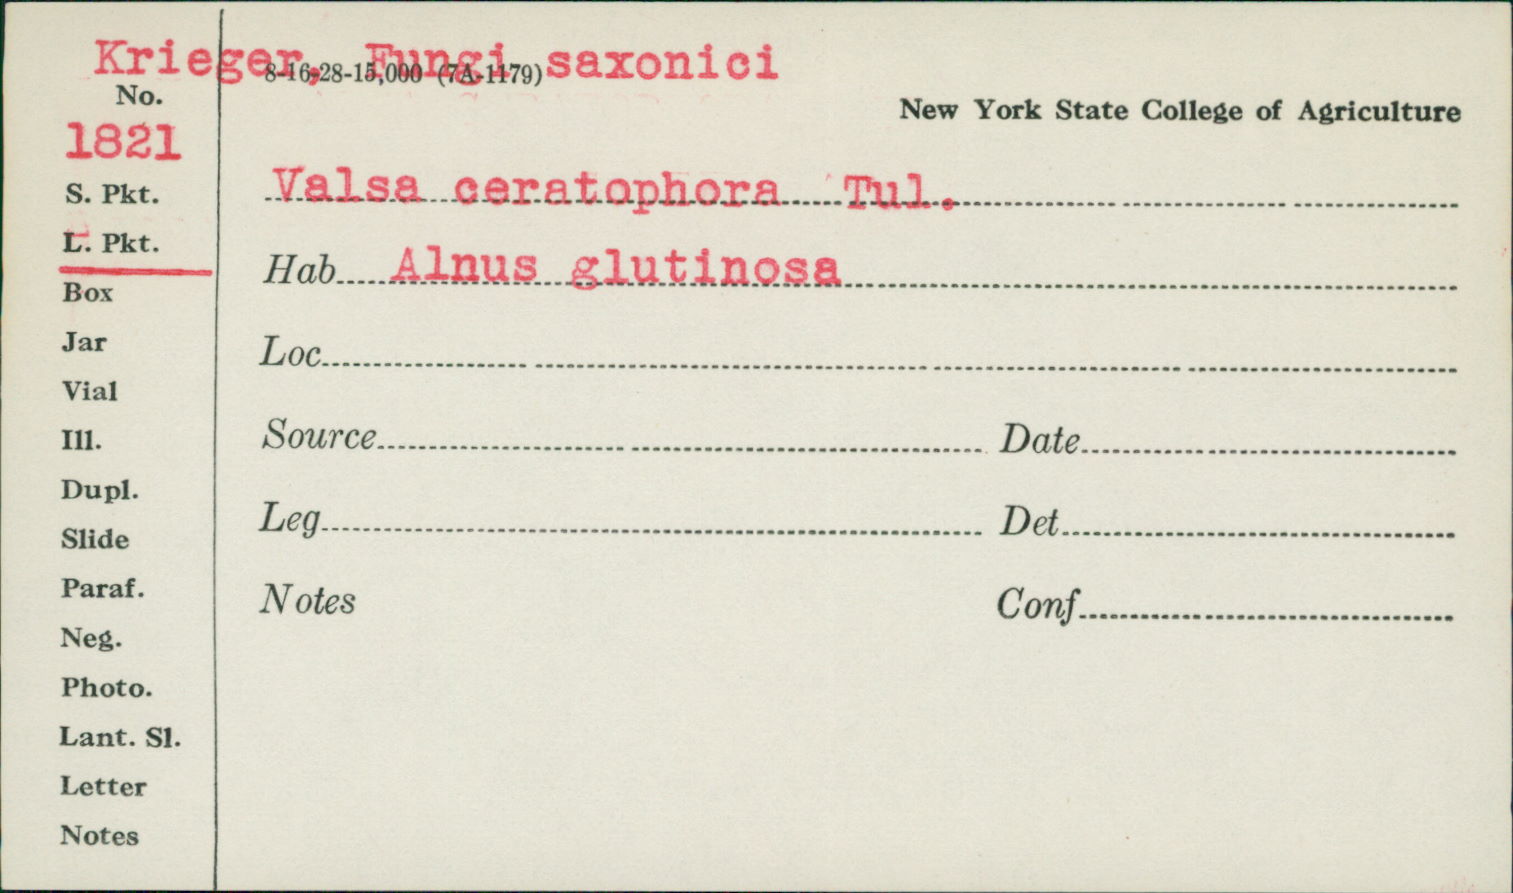 Krieger, Fungi saxonici
8-16-28-15,000 (7A-1179)
No.
1821
New York State College of Agriculture
S. Pkt.
L. Pkt.
Box
Jar
Vial
Ill.
Dupl.
Slide
Paraf.
Neg.
Photo.
Lant. Sl.
Letter
Notes
Valsa ceratophora Tul.
Hab Alnus glutinosa
Loc
Source Date
Leg Det
Notes Conf